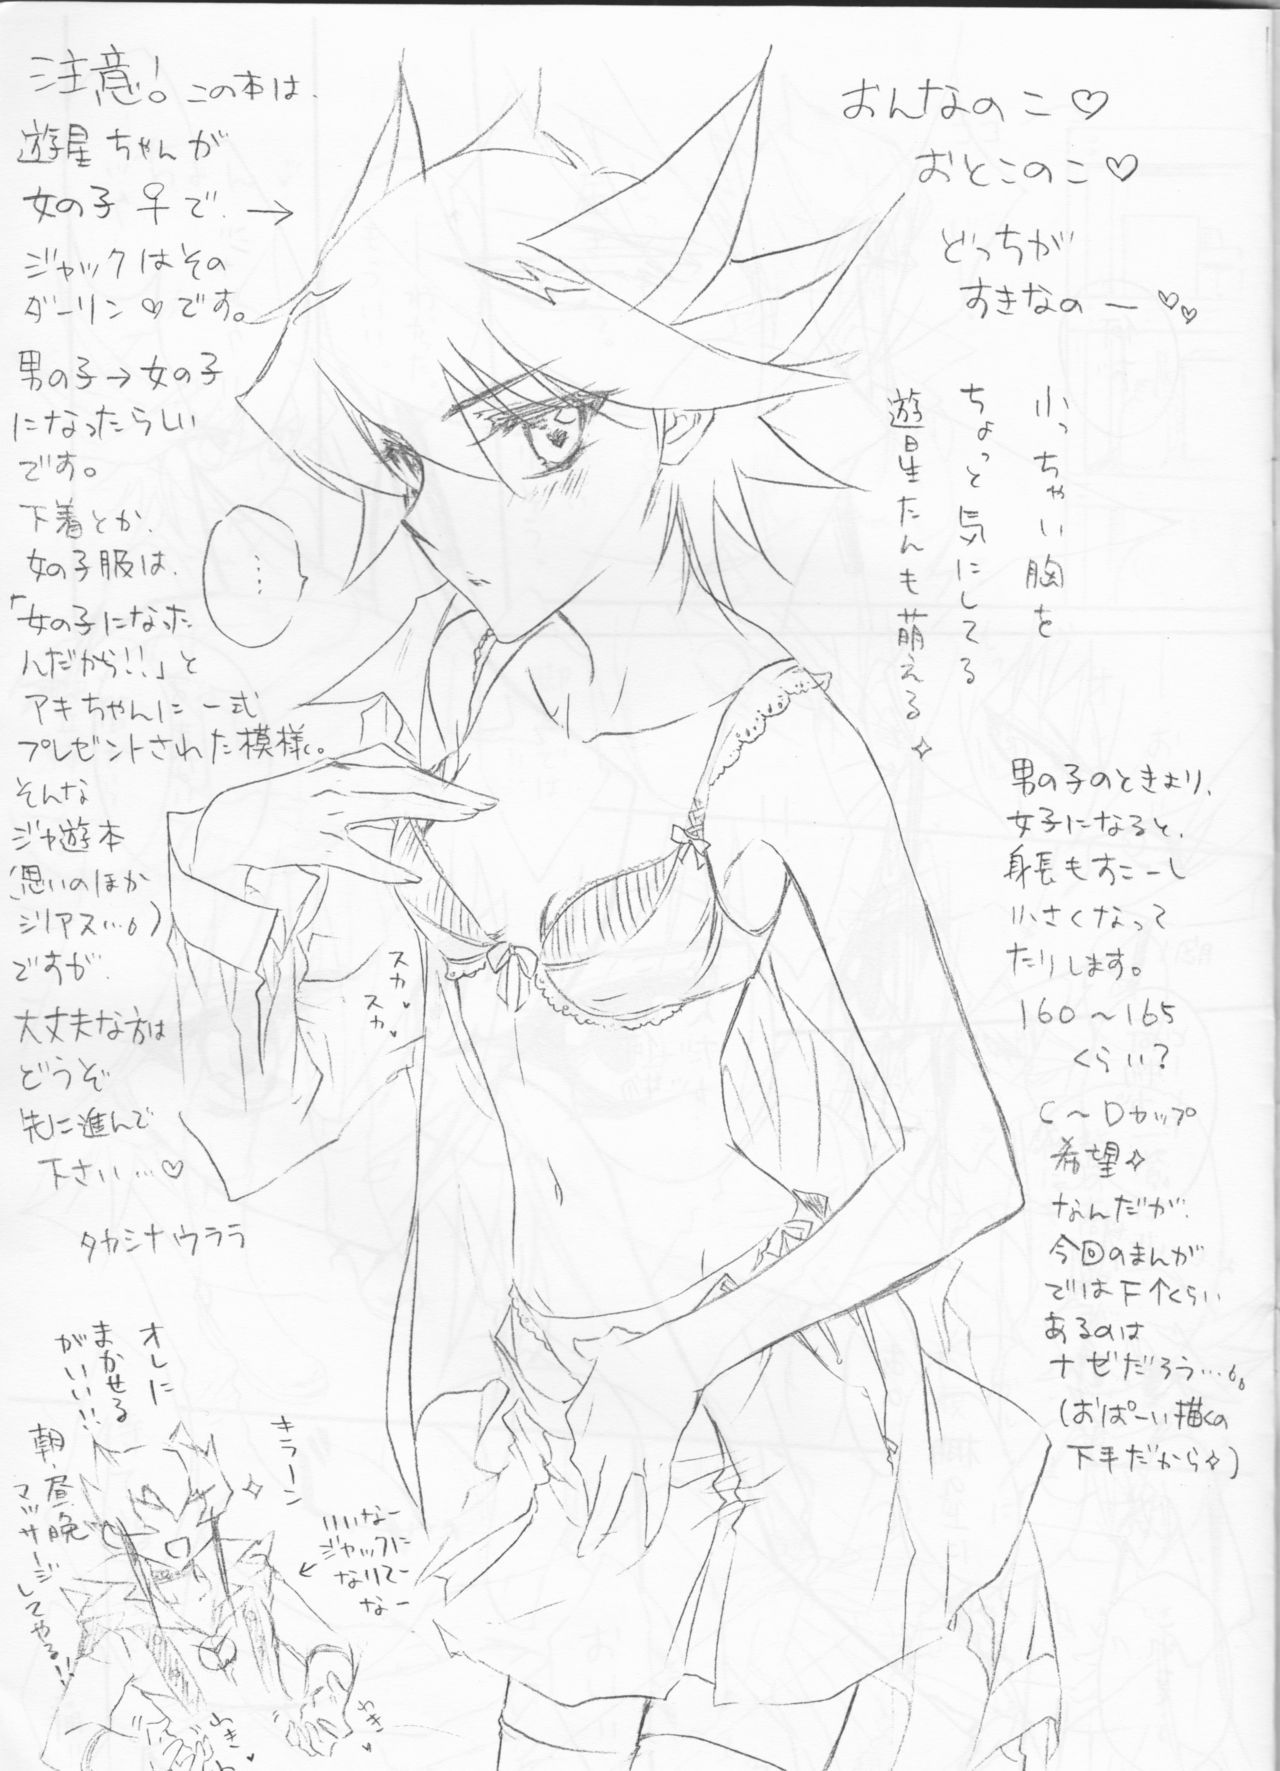 注意! この本は、
遊星ちゃんが
女の子♀で、→
ジャックはその
ダーリン♡です。
男の子→女の子
になったらしい
です。
下着とか、
女の子服は、
「女の子になった
んだから!!」と
アキちゃんに一式
プレゼントされた模様。
そんな
ジャ遊本
(思いのほか
シリアス…)
ですが、
大丈夫な方は
どうぞ
先に進んで
下さい…♡
タカシナウララ
おんなのこ♡
おとこのこ♡
どっちが
すきなのー♡♡
小っちゃい胸を
ちょっと気にしてる
遊星たんも萌える✧
……
スカ
スカ
男の子のときより、
女子になると、
身長もすこーし
小さくなって
たりします。
160～165
くらい?
C～Dカップ
希望✧
なんだが、
今回のまんが
ではF↑くらい
あるのは
ナゼだろう…。
(おぱーい描くの
下手だから✧)
オレに
まかせる
がいい!!
朝・昼・晩
マッサージ
してやる!!
キラーン
いいなー
ジャックに
なりてー
なー
わき
わき